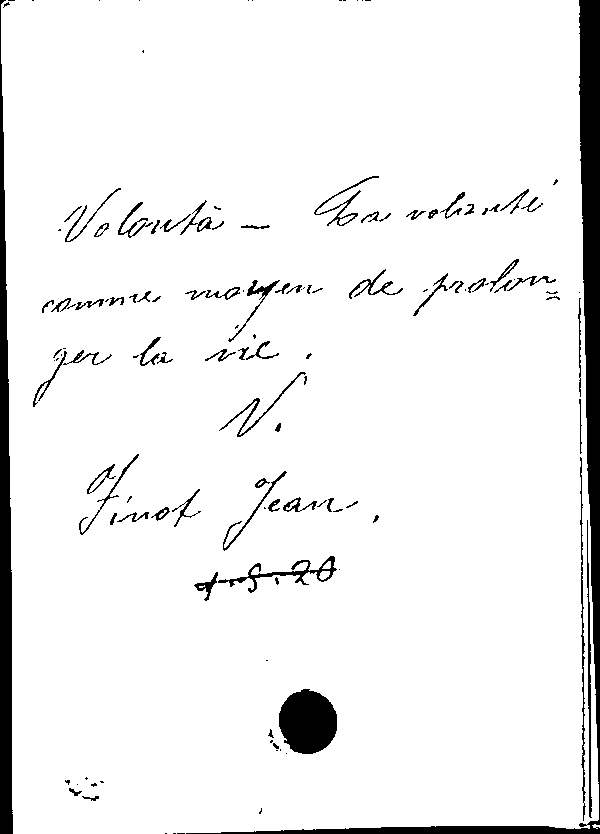 Volontà — La volonté
comme moyen de prolon=
ger la vie.
V.
Finot Jean.